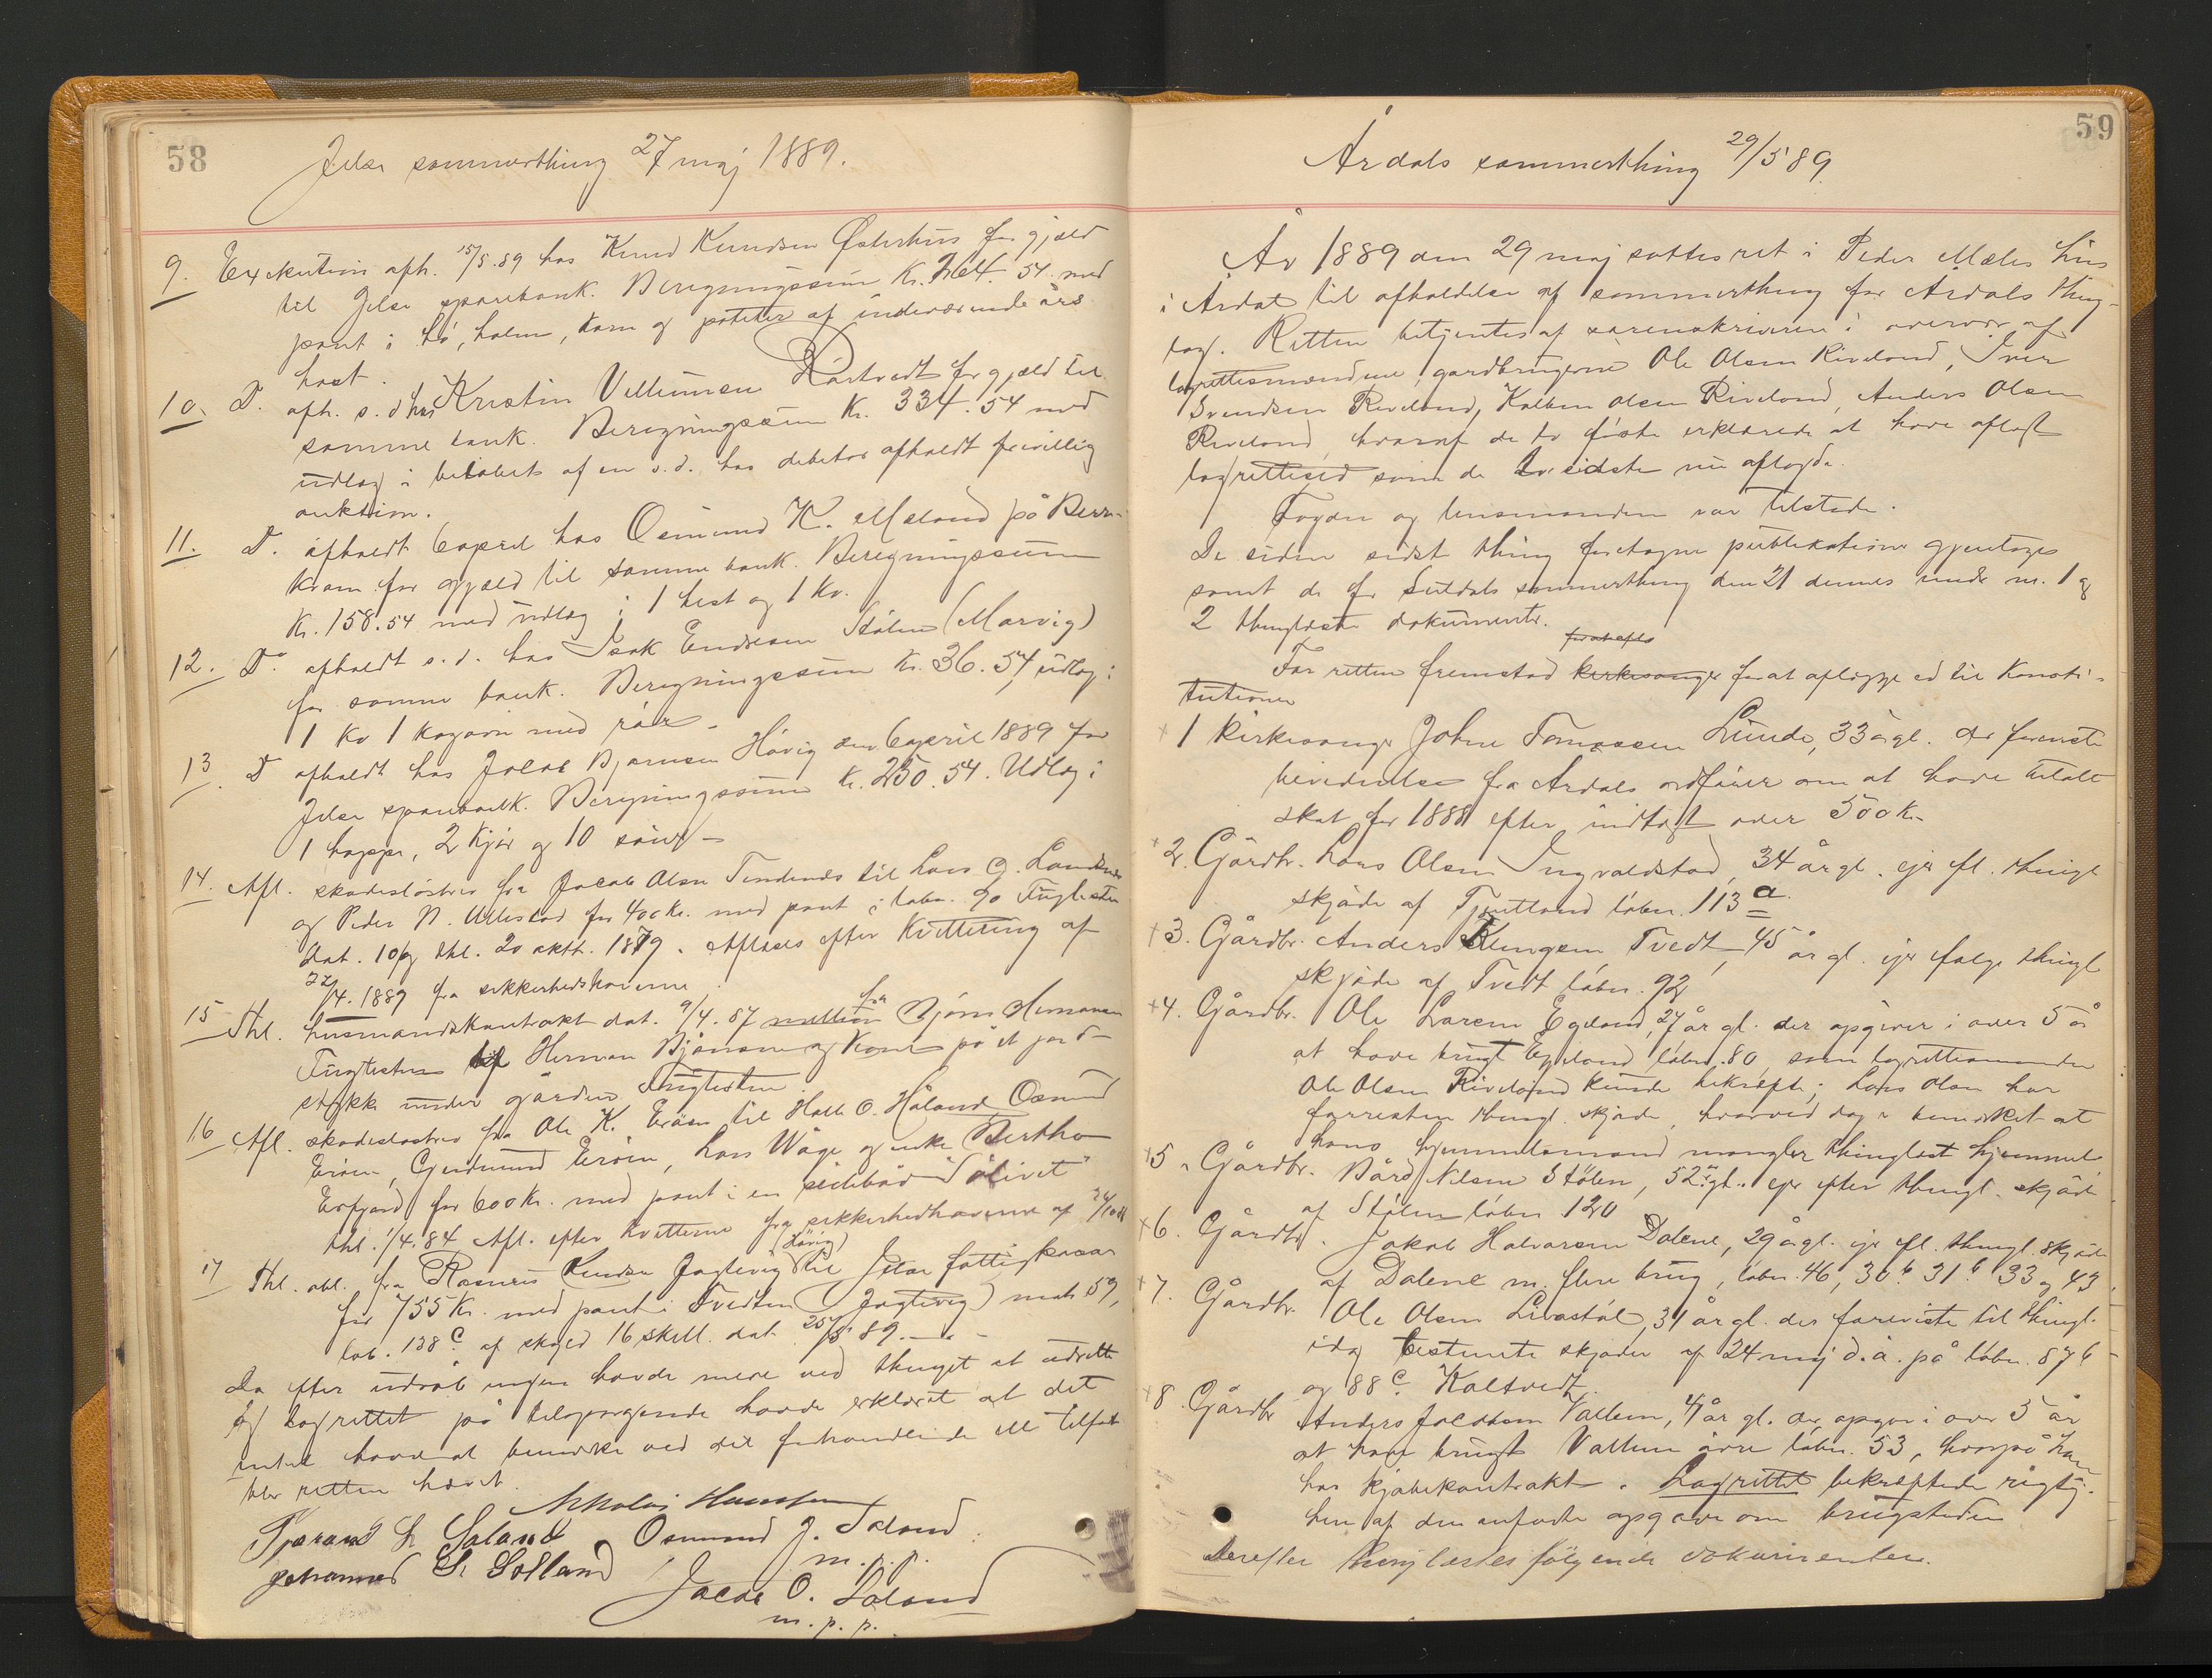 58
Jelse sommerthing 27 maj 1889.
9. Exekution afh. 15/5.89 hos Knud Knudsen Østerhus for gjæld
til Jelse sparebank. Beregningssum Kr. 264.54 med
pant i hø, halm, korn og poteter af indeværende års
høst.
10. Do. afh. s.d hos Kristen Villumsen Hartvedt for gjæld til
samme bank. Beregningssum Kr. 334.54 med
udlæg i beløbet af en s.d. hos debitor afholdt frivillig
auktion.
11. Do. afholdt 6 april hos Osmund K. Mæland på Berre-
kvam for gjæld til samme bank. Beregningssum
Kr. 158.54 med udlæg i 1 hest og 1 ko.
12. Do. afholdt s.d. hos Isak Endresen Stølen (Marvig)
for samme bank. Beregningssum Kr. 36.54, udlæg i
1 ko 1 kogovn med rør –
13. Do afholdt hos Jacob Bjørnsen Høvig den 6 april 1889 for
Jelse sparebank. Beregningssum Kr. 250.54. Udlæg i
1 hoppe, 2 kjør og 10 sauer –
14. Afl. skadesløsbrev fra Jacob Olsen Tendenes til Lars G.
og Peder N. Ullestad for 400 Kr. med pant i løbn. 90 Fuglesten
dat. 10 og thl. 20 oktb. 1879. Aflæses efter kvittering af
27/4. 1889 fra sikkerhedshaverne
15 Thl. husmandskontrakt dat. 9/4.87 mellem fra Bjørn Hermansen
Fuglesten til Herman Bjørnsen og kone på et jord-
stykke under gården Fuglesten
16 Afl. skadesløsbrev fra Ole K. Erøen til Halle O. Håland Osmund
Erøen, Gjerdmund Erøen, Lars Wåge og enke Bertha
Erfjord for 600 Kr. med pant i en seilbåd "Solivet"
thl. 1/4.84 Afl. efter kvittering fra sikkerhedhaverne af
17 Thl. obl. fra Rasmus Knudsen Jøglevig (Høvig) til Jelse fattigkasse
for 755 Kr. med pant i Tvedten (Jøglevig) matr 59,
løb. 138 c af skyld 16 skill. dat 25/5 89. –
Da efter udråb ingen havde mere ved thinget at udrette
og lagrettet på tilspørgende havde erklæret at det
intet havde at bemærke ved det forhandlende ell tilført
blev retten hævet.
Nikolai Hansen
Tjærand L Søland Osmund J. Søland
m.p.p.
Johannes L Sølland Jacob O. Søland
m.p.p.
59
Årdals sommerthing 29/5 89
År 1889 den 29 maj sattes ret i Peder Mæles hus
i Årdal til afholdelse af sommerthing for Årdals thing-
lag. Retten betjentes af sorenskriveren i overvær af
lagrettesmændene, gardbrugerne Ole Olsen Riveland, Iver
Svendsen Riveland, Kolben Olsen Riveland, Anders Olsen
Riveland, hvoraf de to første erklærede at have aflagt
lagretteed som de to sidste nu aflagde.
Fogden og lensmanden var tilstede.
De siden sidst thing foretagne publikationer gjentages
samt de for Suldals sommerthing den 21 dennes under nr. 1 og
2 thinglæste dokumenter.
For retten fremstod kirkesanger for at aflægge ed til Konsti-
tutionen
1 Kirkesanger John Tomassen Lunde, 33 år gl. der foreviste
bevidnelse fra Årdals ordfører om at have betalt
skat for 1888 efter indtægt over 500 Kr.
2. Gårdbr. Lars Olsen Ingvaldstad, 34 år gl. ejer efl. thingl
skjøde af Tjentland løbn. 113 a.
3. Gårdbr. Anders Klungsen Tvedt, 45 år gl. ejer følge thingl
skjøde af Tvedt løbn. 92
4. Gårdbr. Ole Larsen Egeland, 27 år gl. der opgiver i over 5 år
at have brugt Egeland løbn. 80, som lagrettesmanden
Ole Olsen Riveland kunde bekræfte; Lars Olsen har
forresten thingl. skjøde, hvorved dog er bemærket at
hans hjemmelsmand mangler thinglæst hjemmel.
5. Gårdbr. Bård Nilsen Stølen, 52 år gl. ejer efter thingl. skjøde
af Stølen løbn 120
6. Gårdbr. Jakob Halvorsen Dalene, 29 år gl. ejer efl. thingl. skjøde
af Dalene m. flere brug, løbn. 46, 30 b 31 b 33 og 43
7. Gårdbr. Ole Olsen Livastøl, 31 år gl. der foreviste til thingl.
idag bestemte skjøder af 24 maj d.å. på løbn. 87 b
og 88 c. Kaltvedt.
8 Gårdbr Anders Jacobsen Vallem, år gl. der opgav i over 5 år
at have brugt Vallem øvre løbn. 53, hvorpå han
har kjøbekontrakt. Lagrettet bekræftede rigtig-
hen af den anførte opgave om brugstiden
Derefter thinglæstes følgende dokumenter.